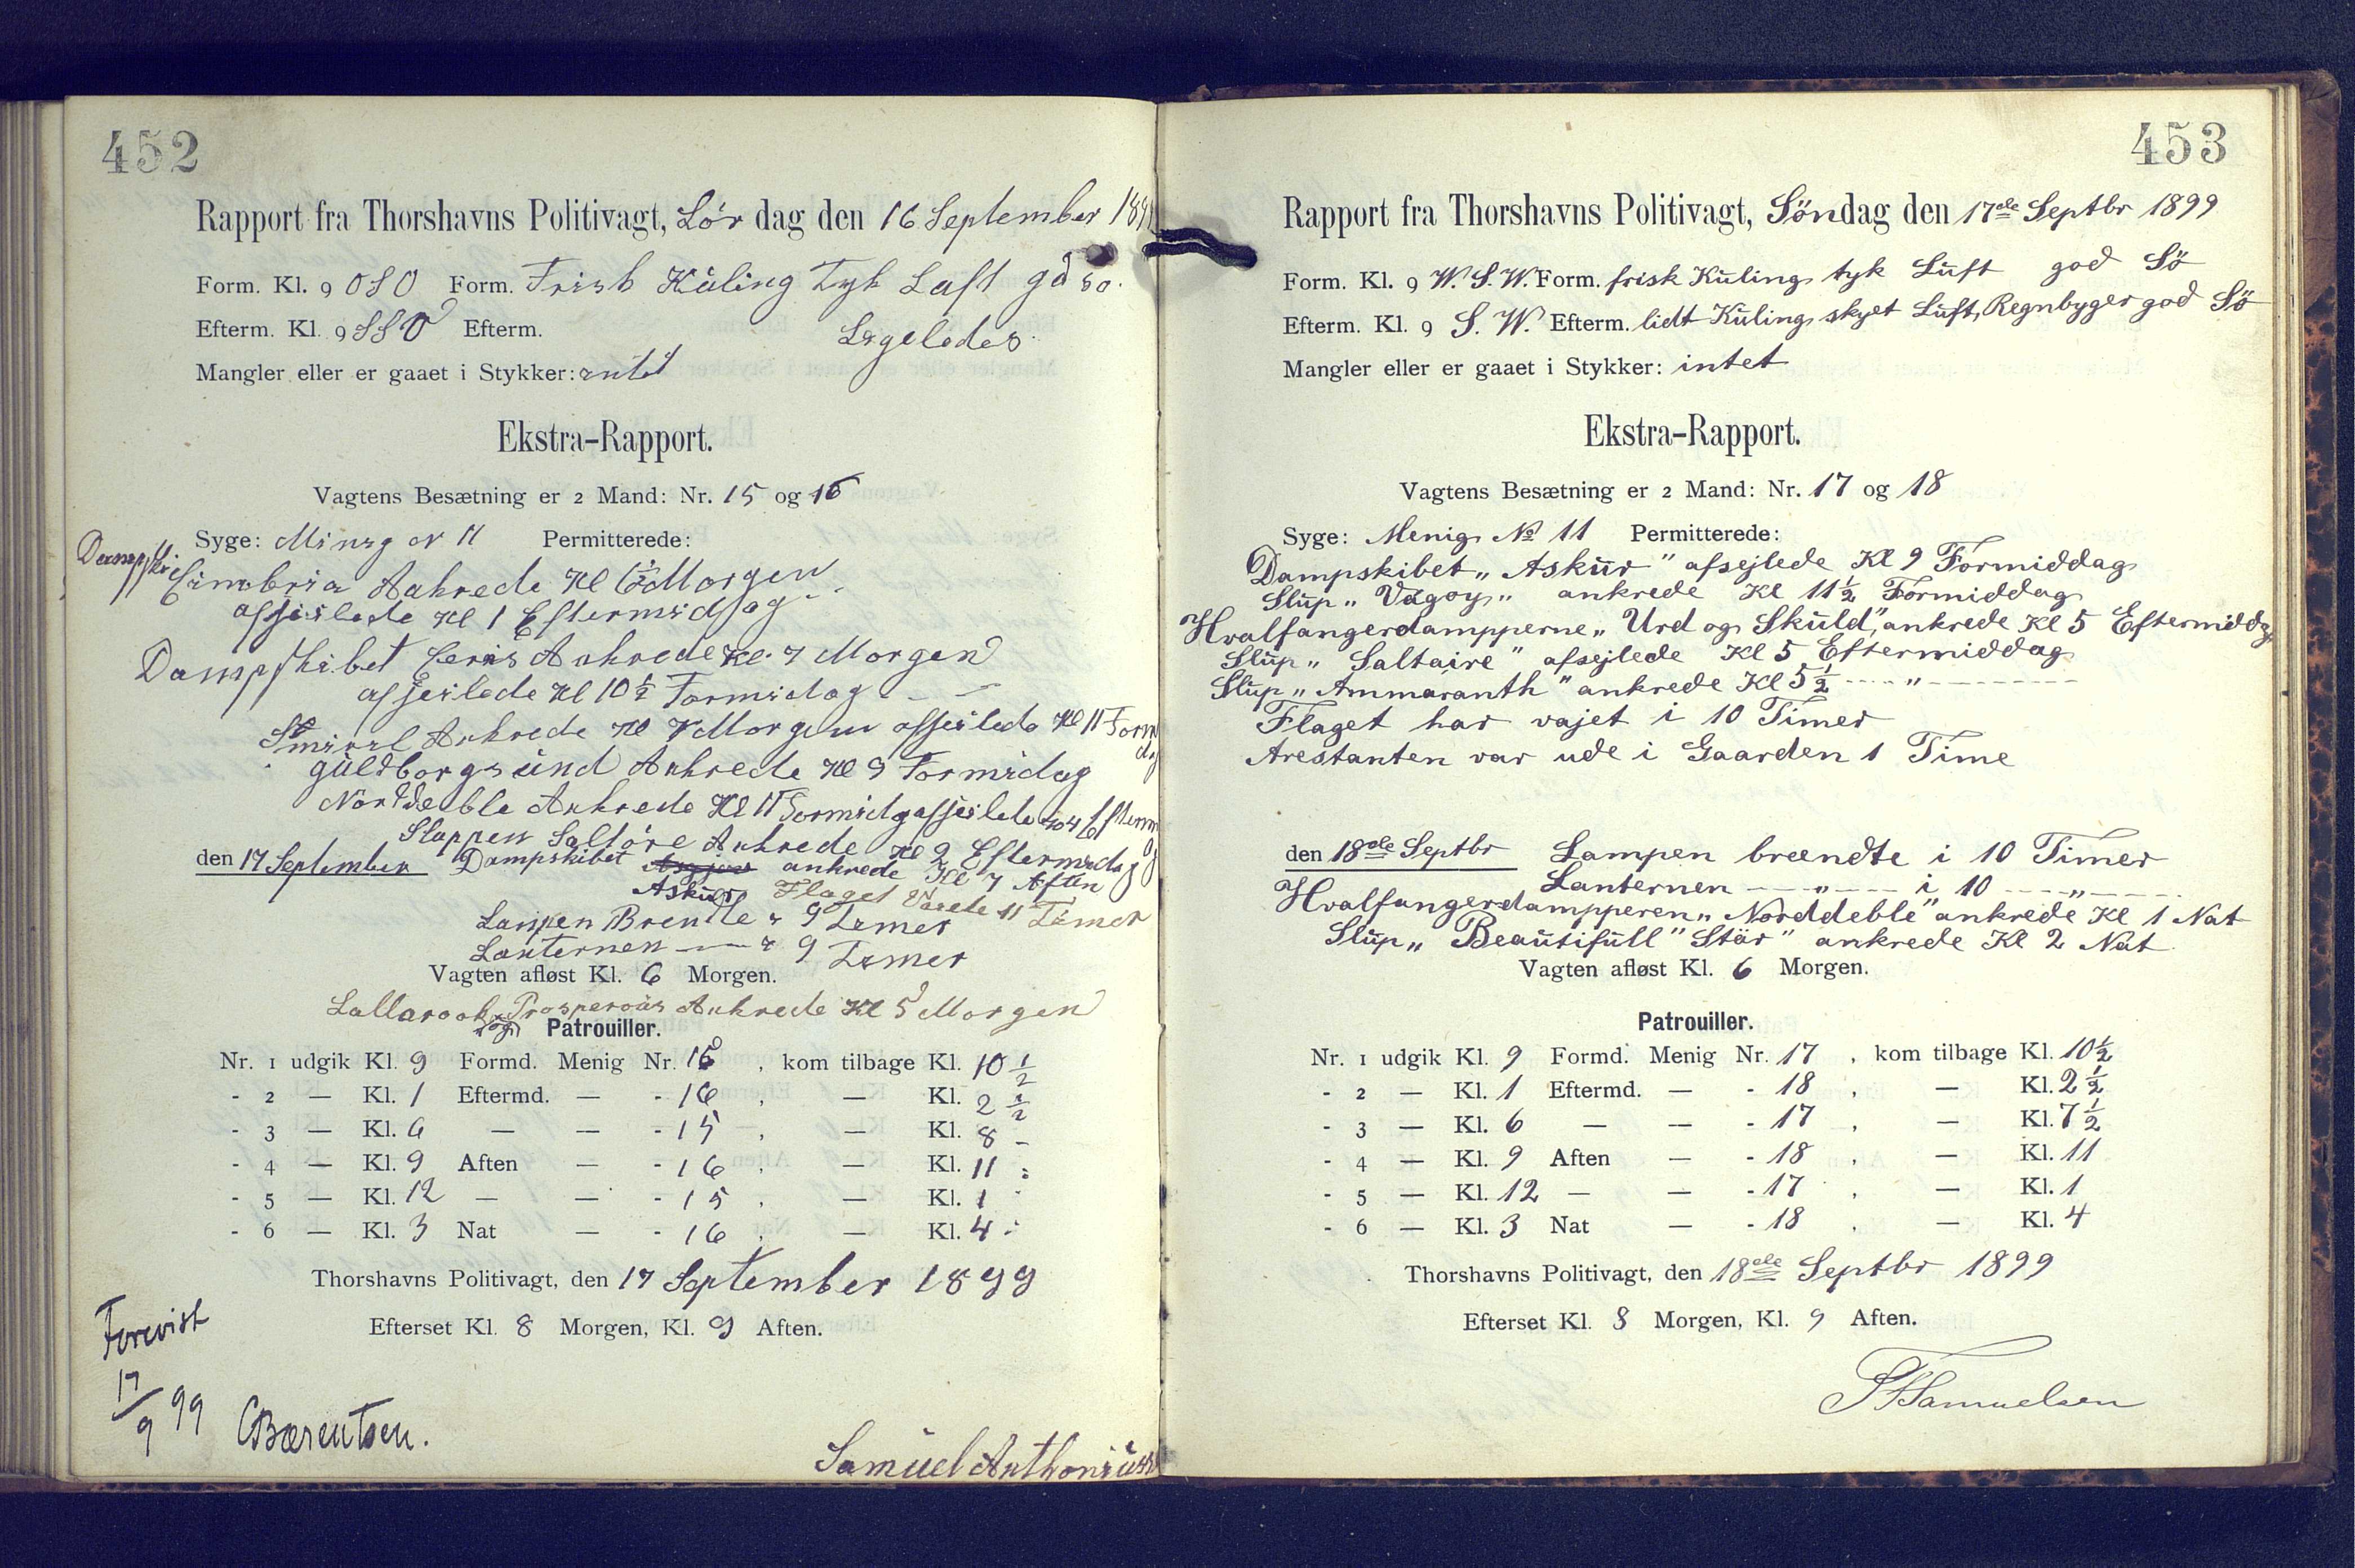 452
Rapport fra Thorshavns Politivagt, Lör dag den 16 September 1899
Form. Kl. 9 OSO Form. Frisk Küling Tyk Luft gd so.
Efterm. Kl. 9 SSO Efterm. Ligeledes
Mangler eller er gaaet i Stykker: intet
Ekstra-Rapport.
Vagtens Besætning er 2 Mand: Nr. 15 og 16
Syge: Minig N 11 Permitterede:
Dampski Cimbria Ankrede Kl 6½ Morgen
afseilede Kl 1 Eftermidag
Dampskibet Ceres Ankrede Kl. 7 Morgen
afseilede Kl 10½ Formidag
Smiril Ankrede Kl 7 Morgen afseilede Kl 11 Form
dg
Güldborgsünd Ankrede Kl 9 Formidag
Norddeble Ankrede Kl 11 Formidg afseilede Kl 4 Efterm
Sluppen Saltöre Ankrede Kl 2 Eftermidag
den 17 September Dampskibet ankrede Kl 7 Aften
Askür Flaget Varede 11 Timer
Lampen Brendte i 9 Timer
Lanternen — i 9 Timer
Vagten afløst Kl. 6 Morgen.
Lallarook og Prosperoüs Ankrede Kl 5 Morgen
Patrouiller.
Nr. 1 udgik Kl. 9 Formd. Menig Nr. 15, kom tilbage Kl. 10½
- 2 — Kl. 1 Eftermd. — - 16, — Kl. 2½
- 3 — Kl. 6 — — - 15, — Kl. 8 -
- 4 — Kl. 9 Aften — - 16, — Kl. 11 -
- 5 — Kl. 12 — — - 15, — Kl. 1 -
- 6 — Kl. 3 Nat — - 16, — Kl. 4 -
Thorshavns Politivagt, den 17 September 1899
Efterset Kl. 8 Morgen, Kl. 9 Aften.
Forevist
17/9 99 CBærentsen.
Samüel Anthoniüsen
453
Rapport fra Thorshavns Politivagt, Søndag den 17de Septbr 1899
Form. Kl. 9 W.S.W. Form. frisk Küling tyk Lüft god Sö
Efterm. Kl. 9 S.W. Efterm. lidt Küling skyet Lüft, Regnbyger god Sö
Mangler eller er gaaet i Stykker: intet
Ekstra-Rapport.
Vagtens Besætning er 2 Mand: Nr. 17 og 18
Syge: Menig No 11 Permitterede:
Dampskibet „Askür" afsejlede Kl 9 Formiddag
Slüp „Vágoy„ ankrede Kl 11½ Formiddag
Hvalfangerdampperne „Urd og Sküld", ankrede Kl 5 Eftermiddg
Slüp „Saltaire" afsejlede Kl 5 Eftermiddag
Slüp „Ammaranth" ankrede Kl 5½ — „ —
Flaget har vajet i 10 Timer
Arestanten var ude i Gaarden 1 Time
den 18de Septbr Lampen brændte i 10 Timer
Lanternen — „ — i 10 — „ —
Hvalfangerdampperen „Norddeble" ankrede Kl 1 Nat
Slüp „Beaütifüll" Stär" ankrede Kl 2 Nat
Vagten afløst Kl. 6 Morgen.
Patrouiller.
Nr. 1 udgik Kl. 9 Formd. Menig Nr. 17, kom tilbage Kl. 10½
- 2 — Kl. 1 Eftermd. — - 18, — Kl. 2½
- 3 — Kl. 6 — — - 17, — Kl. 7½
- 4 — Kl. 9 Aften — - 18, — Kl. 11
- 5 — Kl. 12 — — - 17, — Kl. 1
- 6 — Kl. 3 Nat — - 18, — Kl. 4
Thorshavns Politivagt, den 18de Septbr 1899
Efterset Kl. 8 Morgen, Kl. 9 Aften.
Samuelsen